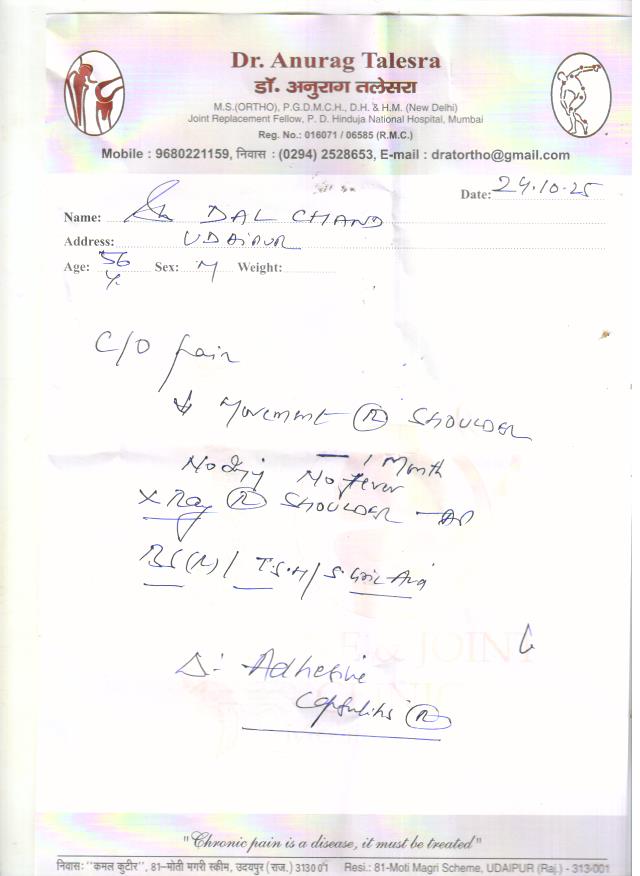 Dr. Anurag Talesra
डॉ. अनुराग तलेसरा
M.S.(ORTHO), P.G.D.M.C.H., D.H. & H.M. (New Delhi)
Joint Replacement Fellow, P. D. Hinduja National Hospital, Mumbai
Reg. No.: 016071 / 06585 (R.M.C.)
Mobile : 9680221159, निवास : (0294) 2528653, E-mail : dratortho@gmail.com
Date: 24.10.25
Name: Sh DAL CHAND
Address: UDAIPUR
Age: 56 Y. Sex: M Weight:
C/O Pain
↓ Movement (R) SHOULDER
- 1 Month
No Fever
X Ray (R) SHOULDER - AP
T.S.H / S.
Δ: Adhesive
Capsulitis (R)
JOINT
"Chronic pain is a disease, it must be treated"
निवास: "कमल कुटीर", 81-मोती मगरी स्कीम, उदयपुर (राज.) 313001 Resi.: 81-Moti Magri Scheme, UDAIPUR (Raj.) - 313-001